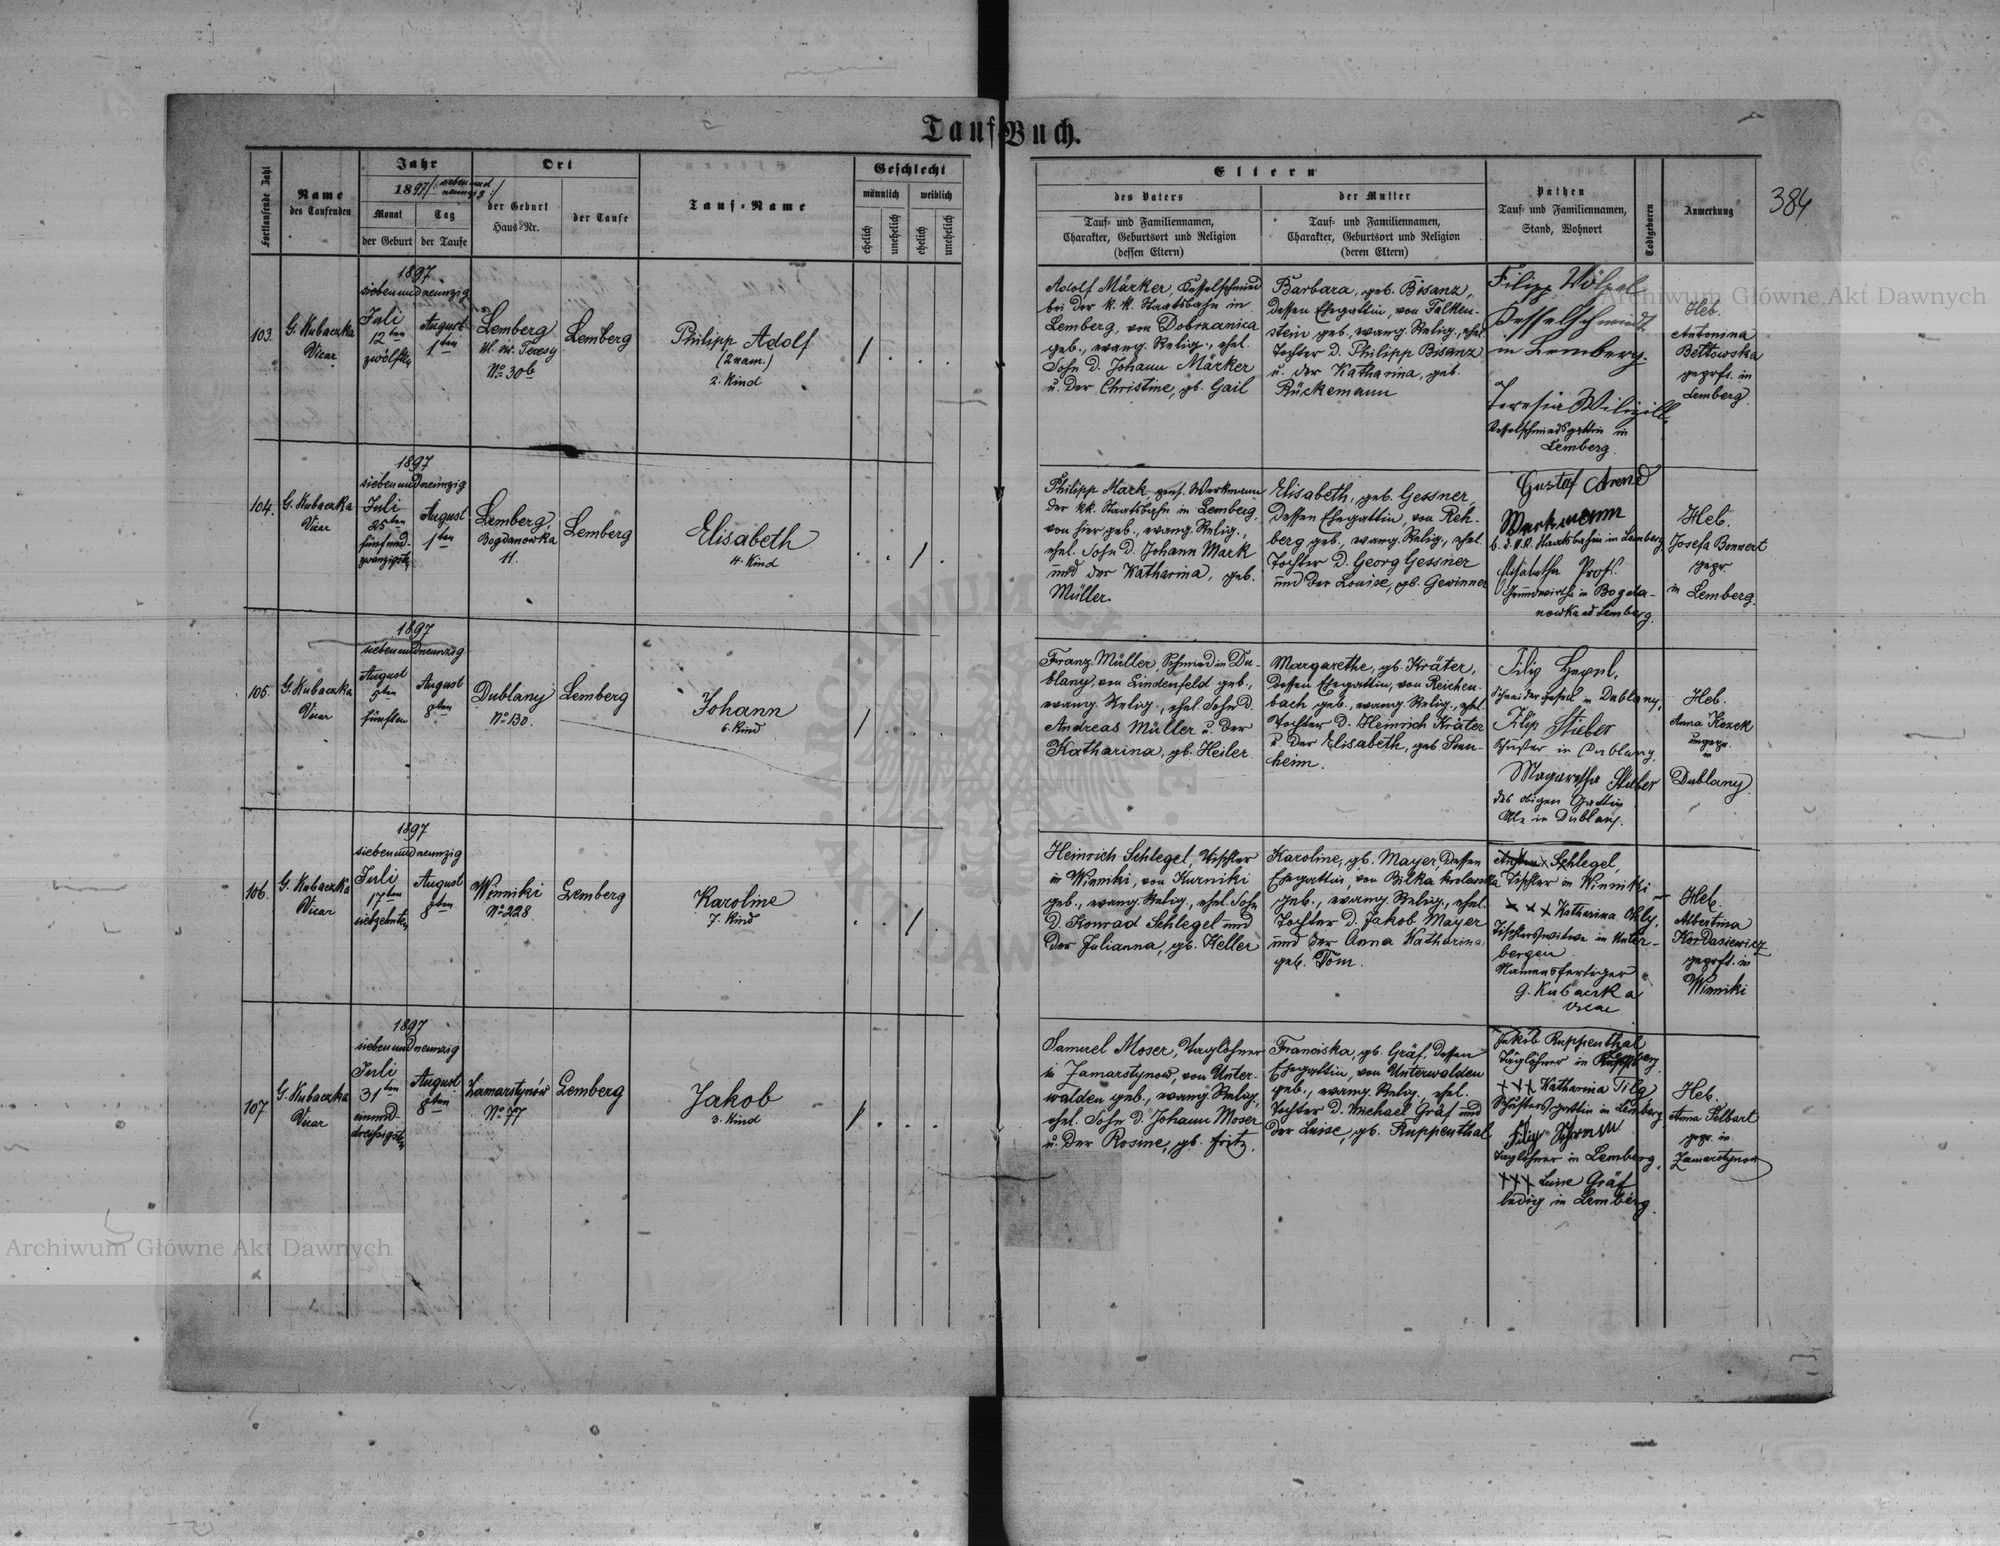 Tauf-Buch.
384
Fortlaufende Zahl
Name
des Taufenden
Jahr
1897/: sieben und
neunzig :/
Monat
Tag
der Geburt
der Taufe
Ort
der Geburt
Haus-Nr.
der Taufe
Tauf-Name
Geschlecht
männlich
weiblich
ehelich
unehelich
ehelich
unehelich
Eltern
des Vaters
Tauf- und Familiennamen,
Charakter, Geburtsort und Religion
(dessen Eltern)
der Mutter
Tauf- und Familiennamen,
Charakter, Geburtsort und Religion
(deren Eltern)
Pathen
Tauf- und Familiennamen,
Stand, Wohnort
Todtgeboren
Anmerkung
103.
G. Kubaczka
Vicar
1897
sieben und neunzig
Juli
12ten
zwölften
August
1ten
Lemberg
Ul. św. Teresy
No 30b
Lemberg
Philipp Adolf
(2 nam.)
2. Kind
Adolf Märker, Kesselschmied
bei der k. k. Staatsbahn in
Lemberg, von Dobrzanica
geb., evang. Relig., ehel.
Sohn d. Johann Märker
u. der Christine, gb. Gail
Barbara, geb. Bisanz,
dessen Ehegattin, von Falken-
stein geb., evang. Relig., ehel.
Tochter d. Philipp Bisanz
u. der Katharina, geb.
Rückemann
Filipp Wölpel
Kesselschmiedt
in Lemberg.
Teresia
Kesselschmiedsgattin in
Lemberg.
Heb.
Antonina
Bełtowska
geprft. in
Lemberg.
104.
G. Kubaczka
Vicar
1897
sieben und neunzig
Juli
25ten
fünf und-
zwanzigsten
August
1ten
Lemberg,
Bogdanowka
11.
Lemberg
Elisabeth
4. Kind
Philipp Mark, pens. Werkmann
der kk. Staatsbahn in Lemberg,
von hier geb., evang. Relig.,
ehel. Sohn d. Johann Mark
und der Katharina, geb.
Müller.
Elisabeth, geb. Gessner,
dessen Ehegattin, von Reh-
berg geb., evang. Relig., ehel.
Tochter d. Georg Gessner
und der Louise, gb. Gewinner
Gustaf Arend
Werkmann
b. d. k.k. Staatsbahn in Lemberg
Elisabetha Prof.
Grundwirthin in Bogda-
nowka ad Lemberg.
Heb.
Josefa Bonnert
gepr.
in Lemberg.
105.
G. Kubaczka
Vicar
1897
sieben und neunzig
August
5ten
fünften
August
8ten
Dublany
No 130.
Lemberg
Johann
6. Kind
Franz Müller, Schmied in Du-
blany, von Lindenfeld geb.,
evang. Relig., ehel. Sohn d.
Andreas Müller u. der
Katharina, gb. Heiler
Margarethe, gb. Kräter,
dessen Ehegattin, von Reichen-
bach geb., evang. Relig., ehel.
Tochter d. Heinrich Kräter
u. der Elisabeth, geb
heim.
Filip
in Dublany,
Filip Stieber
Schuster in Dublany,
Magaretha Stieber
des obigen Gattin
Alle in Dublany.
Heb.
Anna Kozek
ungepr.
in
Dublany
106.
G. Kubaczka
Vicar
1897
sieben und neunzig
Juli
17ten
siebzehnten
August
8ten
Winniki
No 228.
Lemberg
Karoline
7. Kind
Heinrich Schlegel, Tischler
in Winniki, von Kurniki
geb., evang. Relig., ehel. Sohn
d. Konrad Schlegel und
der Julianna, gb. Keller
Karoline, gb. Mayer, dessen
Ehegattin, von Bilka krolewska
geb., evang. Relig., ehel.
Tochter d. Jakob Mayer
und der Anna Katharina
geb. Töm.
Schlegel,
Tischler in Winniki
x x x Katharina Ohly,
Tischlerswitwe in Unter-
bergen
Namensfertiger
G. Kubaczka
Vicar
Heb.
Albertina
Kordasiewicz
geprft. in
Winniki
107
G. Kubaczka
Vicar
1897
sieben und neunzig
Juli
31ten
einund-
dreissigsten
August
8ten
Zamarstynów
No 77
Lemberg
Jakob
3. Kind
Samuel Moser, Taglöhner
in Zamarstynow, von Unter-
walden geb., evang. Relig.,
ehel. Sohn d. Johann Moser
u. der Rosine, gb. Fritz.
Franciska, gb. Gräf, dessen
Ehegattin, von Unterwalden
geb., evang. Relig., ehel.
Tochter d. Michael Gräf und
der Luise, gb. Ruppenthal
Jakob Ruppenthal
Taglöhner in Lemberg.
x x x Katharina Tilg
Schustersgattin in Lemberg
Filip
Taglöhner in Lemberg,
x x x Luise Gräf
ledig in Lemberg.
Heb.
Anna Telbart
gepr. in
Zamarstynow
Archiwum Główne Akt Dawnych
Archiwum Główne Akt Dawnych